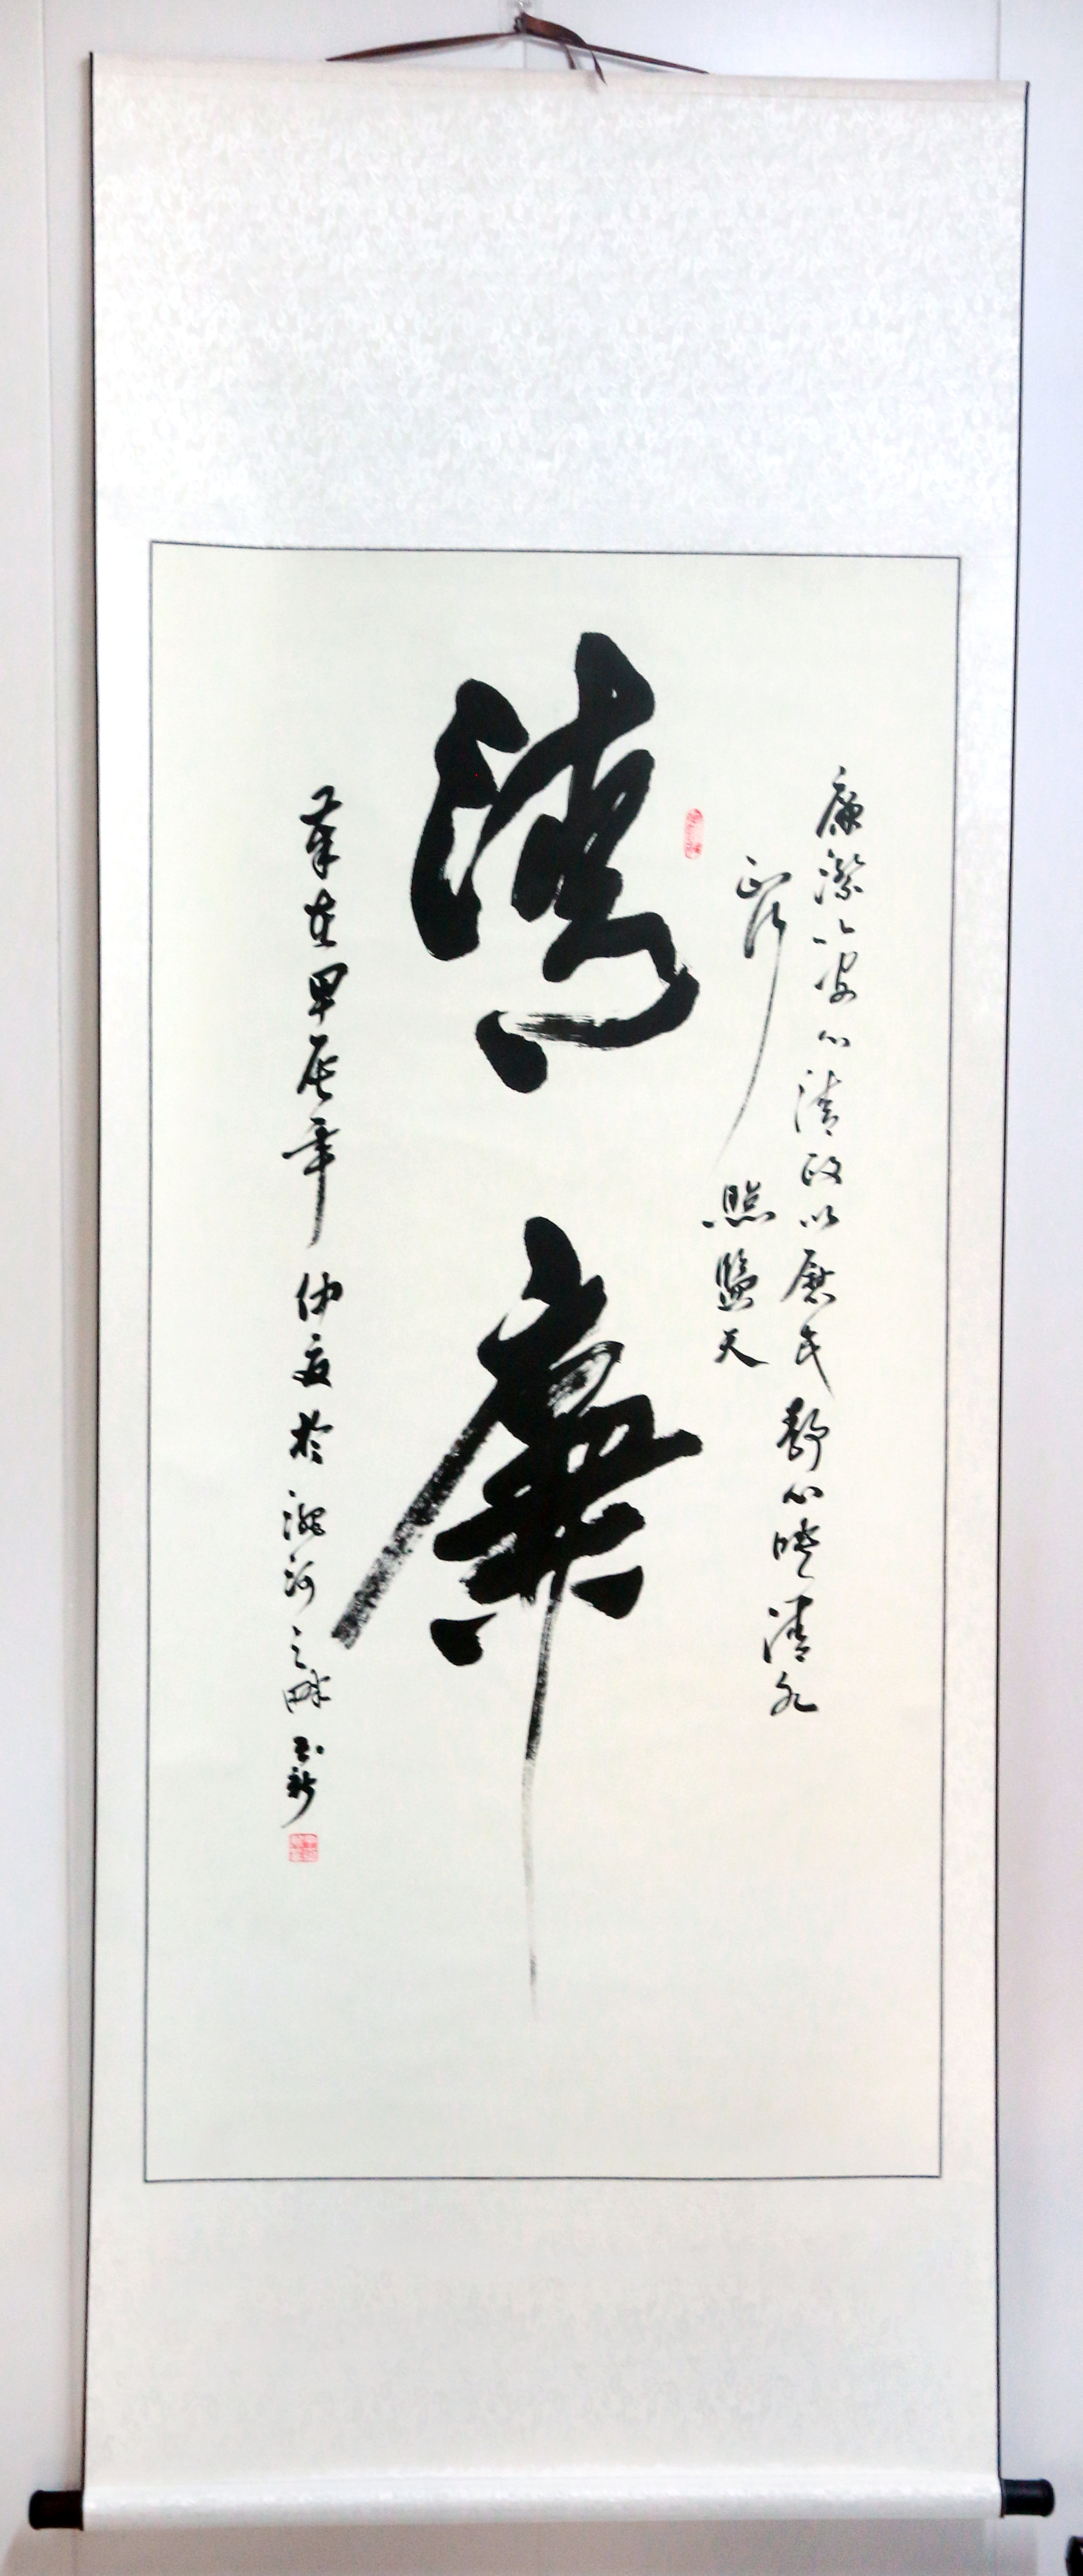 廉潔以安心清政以慰民靜心映清水
正行照鹽天
清
廉
筆在甲辰年仲夏於混河之畔玉新